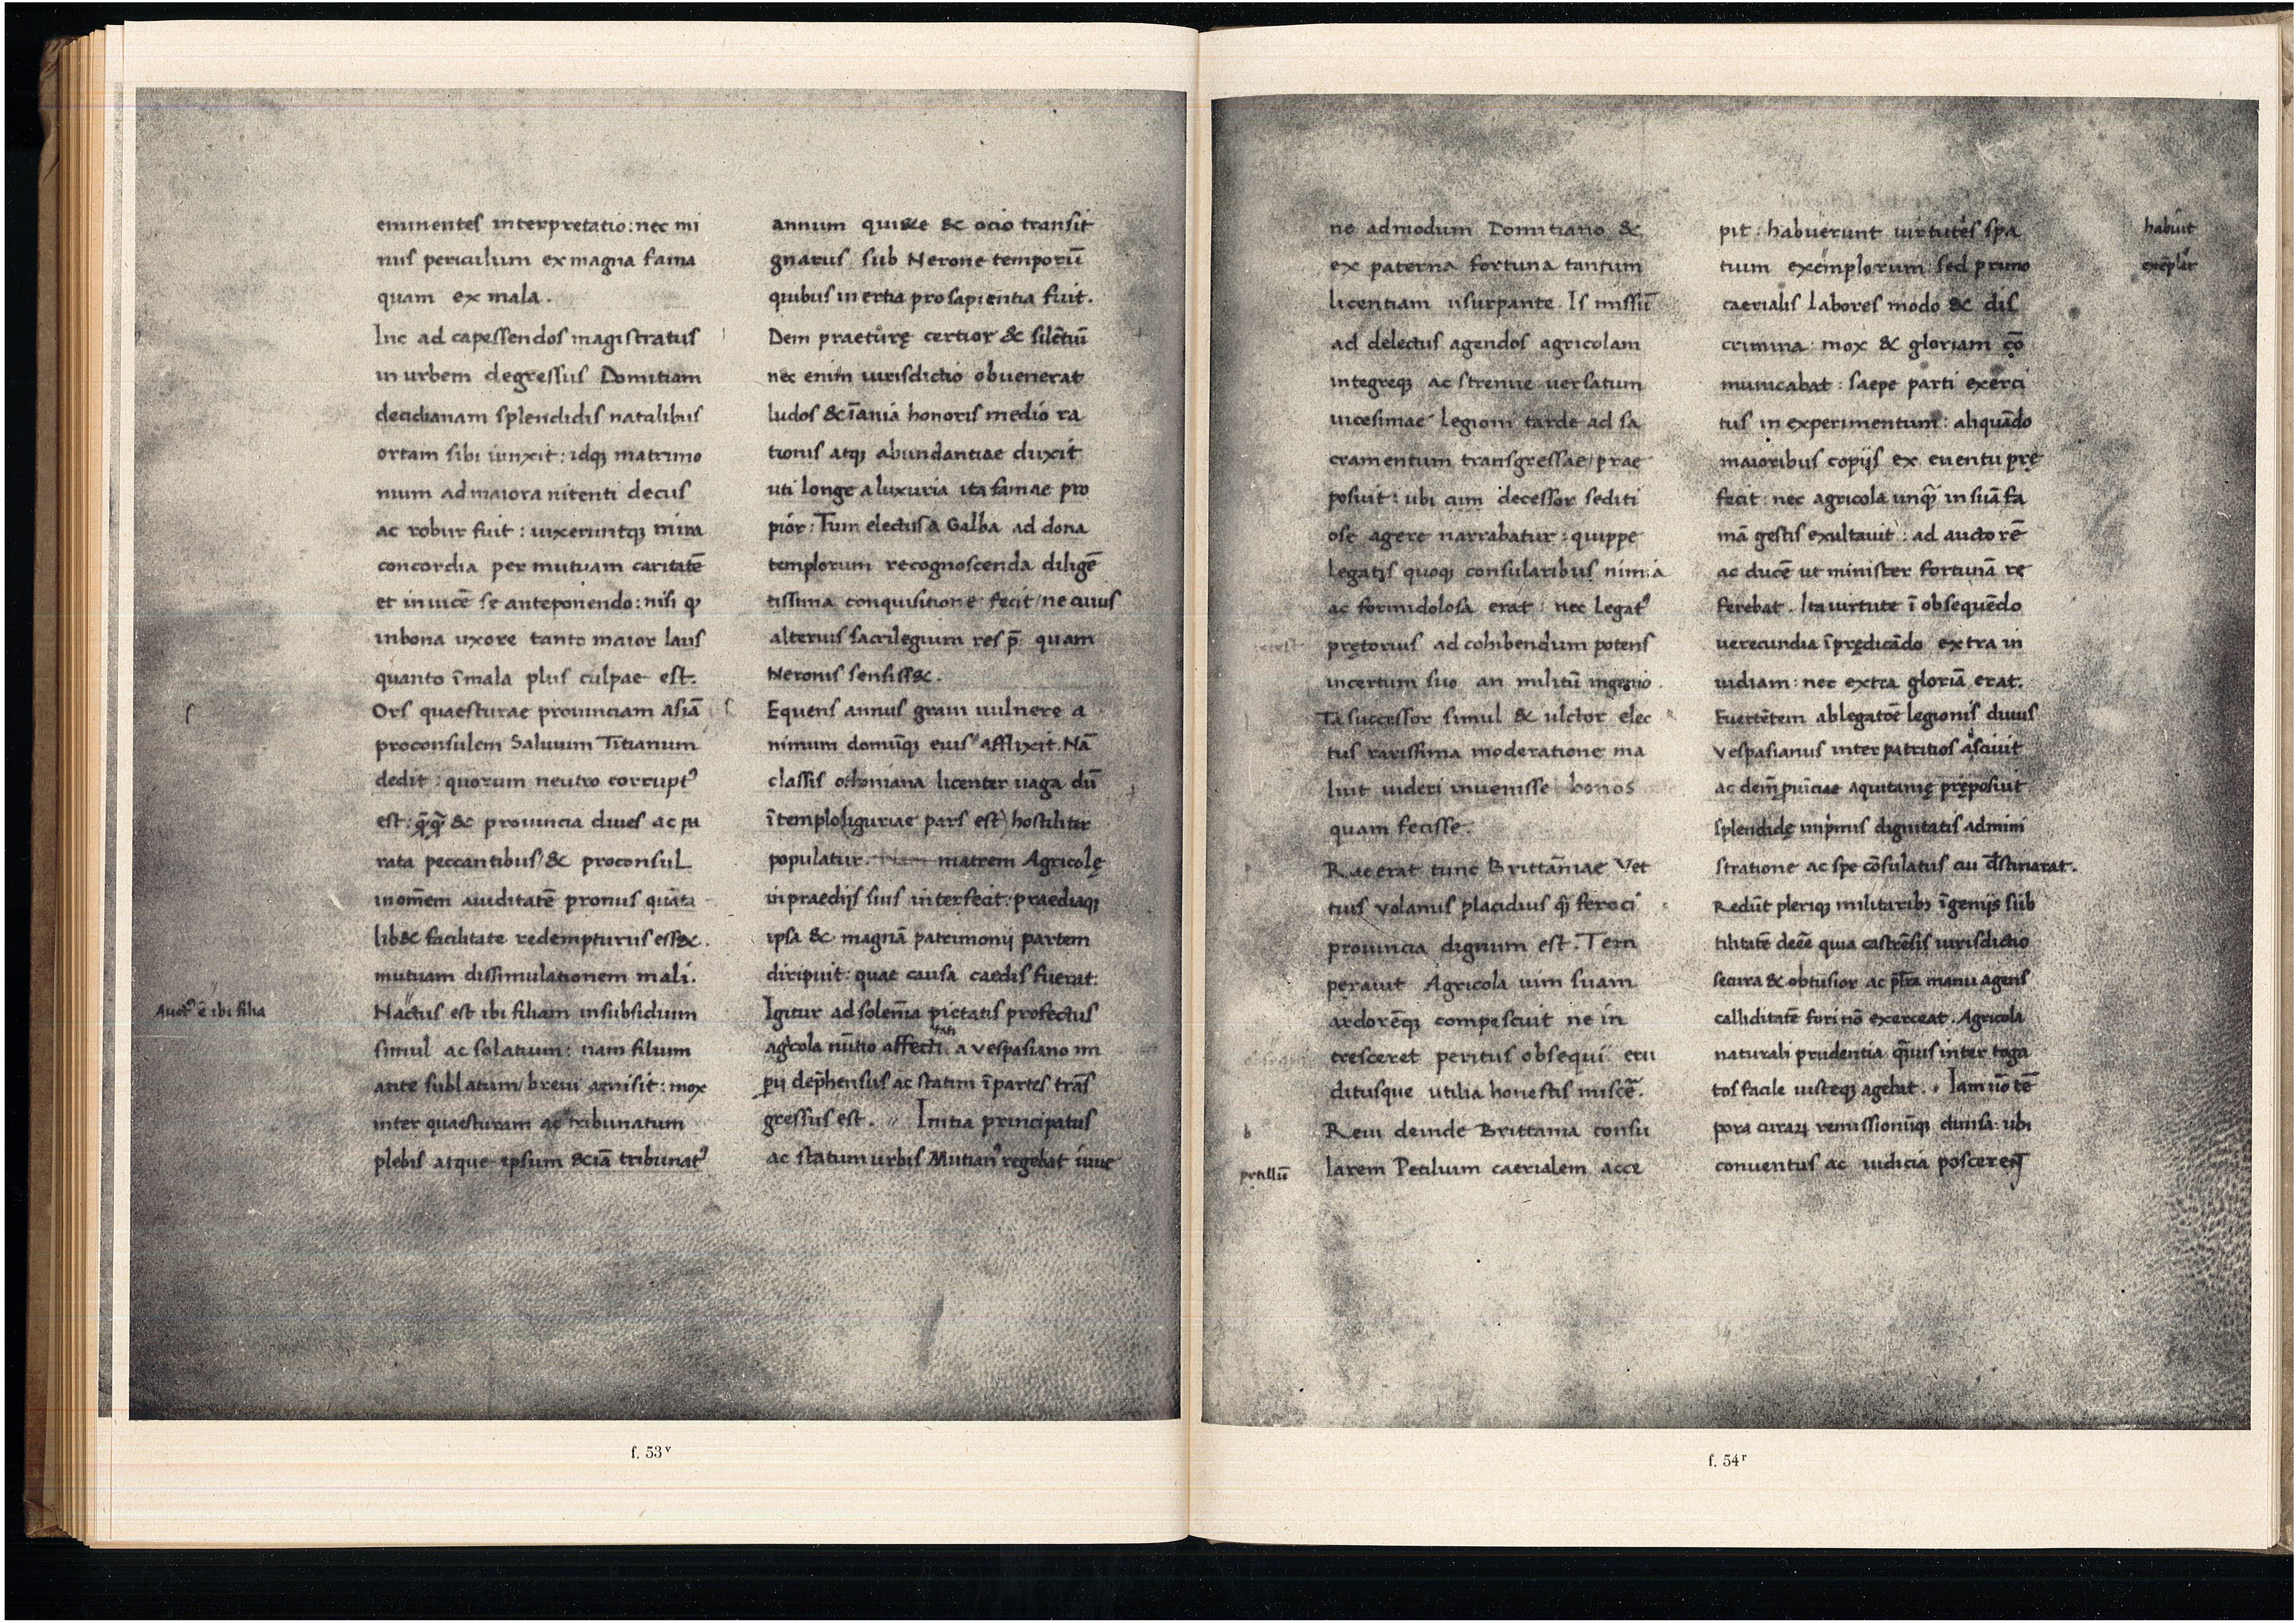 eminentes interpretatio: nec mi
nus periculum ex magna fama
quam ex mala.
Inc ad capessendos magistratus
in urbem degressus Domitiam
decidianam splendidis natalibus
ortam sibi iunxit: idq; matrimo
nium ad maiora nitenti decus
ac robur fuit: uixeruntq; mira
concordia per mutuam caritatē
et inuicē se anteponendo: nisi ꝙ
inbona uxore tanto maior laus
quanto ī mala plus culpae est.
Ors quaesturae prouinciam asiā
proconsulem Saluium Titianum
dedit: quorum neutro corruptꝰ
est: q̄q̄ & prouincia diues ac pa
rata peccantibus & proconsul
in om̄em auiditatē pronus quāta
lib& facilitate redempturus ess&.
mutuam dissimulationem mali.
Auctꝰ ē ibi filia
Nactus est ibi filiam insubsidium
simul ac solatium: nam filium
ante sublatum breui amisit: mox
inter quaesturam ac tribunatum
plebis atque ipsum &iā tribunatꝰ
annum quiete & ocio transiit
gnarus sub Nerone temporū
quibus inertia pro sapientia fuit.
Dem praeturę certior & silētiū
nec enim iurisdictio obuenerat
ludos & īania honoris medio ra
tionis atq; abundantiae duxit
uti longe a luxuria ita famae pro
pior: Tum electus a Galba ad dona
templorum recognoscenda diligē
tissima conquisitione fecit ne cuius
alterius sacrilegium res p̄. quam
Neronis sensiss&.
Equens annus graui uulnere a
nimum domūq; eius afflixit. Nā
classis othoniana licenter uaga dū
ī templo (liguriae pars est) hostiliter
populatur. Nam matrem Agricolę
in praediis suis interfecit: praediaq;
ipsa & magnā patrimonij partem
diripuit: quae causa caedis fuerat.
Igitur ad solēnia pietatis profectus
agͥcola nūtio affecti a Vespasiano im
tati
ꝑij dep̄hensus ac statim ī partes trās
gressus est. Initia principatus
ac statum urbis Mutianꝰ regebat iuue
f. 53v
ne admodum Domitiano &
ex paterna fortuna tantum
licentiam usurpante. Is missū
ad delectus agendos agricolam
integreq; ac strenue uersatum
uicesimae legioni tarde ad sa
cramentum transgressae prae
posuit: ubi cum decessor sediti
ose agere narrabatur: quippe
legatis quoq; consularibus nimia
ac formidolosa erat: nec legatꝰ
prętorius ad cohibendum potens
incertum suo an militū ingenio.
Ta successor simul & ultor elec
tus rarissima moderatione ma
luit uideri inuenisse bonos
quam fecisse.
Rae erat tunc Brittāniae Vet
tius volanus placidius q̄ feroci
prouincia dignum est. Tem
perauit Agricola uim suam
ardorēq; compescuit ne in
cresceret peritus obsequi eru
ditusque utilia honestis miscē.
Reui deinde Brittania consu
petiliū
larem Petilium caerialem acce
pit: habuerunt uirtutes spa
habuit
tium exemplorum: sed primo
exēplar
caerialis labores modo & dis
crimina: mox & gloriam cō
municabat: saepe parti exerci
tus in experimentum: aliquādo
maioribus copijs ex euentu prę
fecit: nec agricola unq̄ in suā fa
mā gestis exultauit: ad auctorē
ac ducē ut minister fortunā re
ferebat. Ita uirtute ī obsequēdo
uerecundia ī prędicādo extra in
uidiam: nec extra gloriā erat.
Euertētem ab legatōe legionis diuus
Vespasianus inter patritios asciuit
ac deīn ꝓuīciae Aquitanię pręposuit
splendidę imp̄mis dignitatis admini
stratione ac spe cōsulatus cui dēstinarat.
Redūt pleriq; militaribꝫ īgenijs sub
tilitatē deēe quia castrēsis iurisdictio
secura & obtusior ac pl̄ra manu agens
calliditatē fori nō exerceat. Agricola
naturali prudentia q̄uis inter toga
tos facile iusteq; agebat. Iam uō tē
pora curaꝝ remissionūq; diuisa: ubi
conuentus ac iudicia poscerent
f. 54r